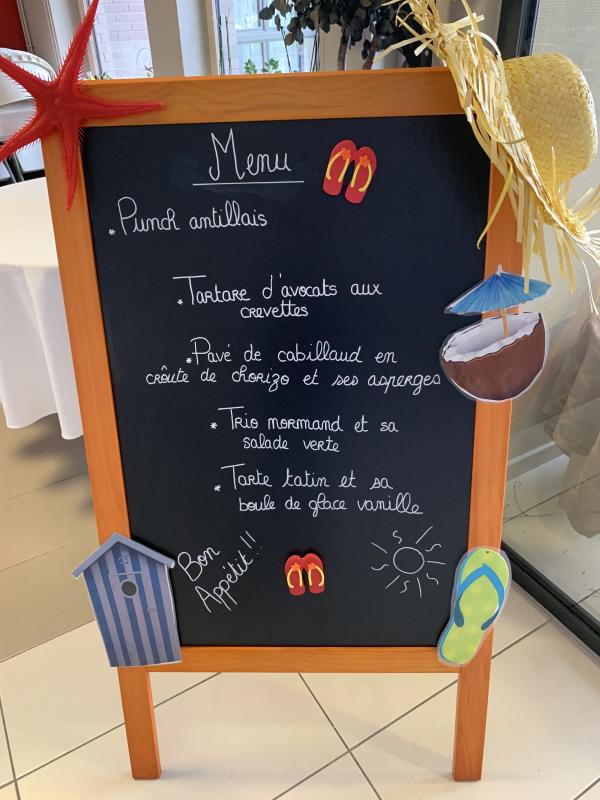 Menu
* Punch antillais
* Tartare d'avocats aux
crevettes
* Pavé de cabillaud en
croûte de chorizo et ses asperges
* Trio normand et sa
salade verte
* Tarte tatin et sa
boule de glace vanille
Bon
Appétit!!